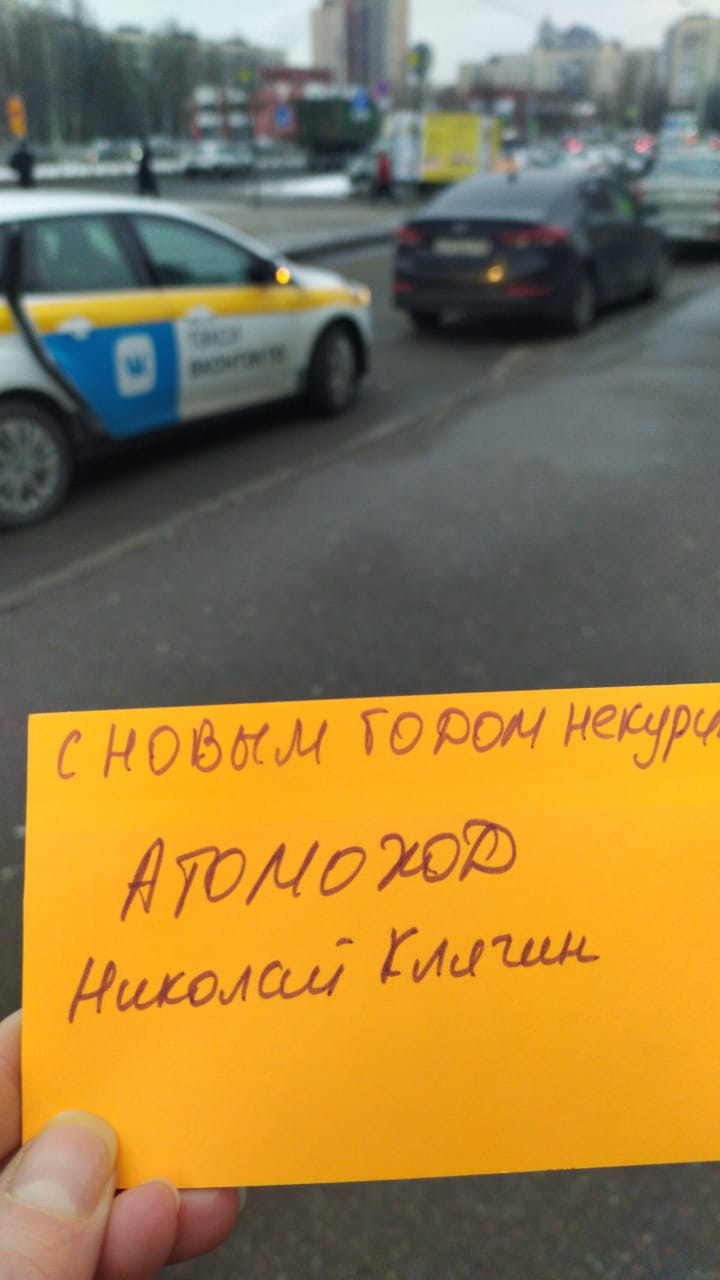 ТАКСИ
ВКОНТАКТЕ
С НОВЫМ ГОДОМ некури
АТОМОХОД
Николай Клягин